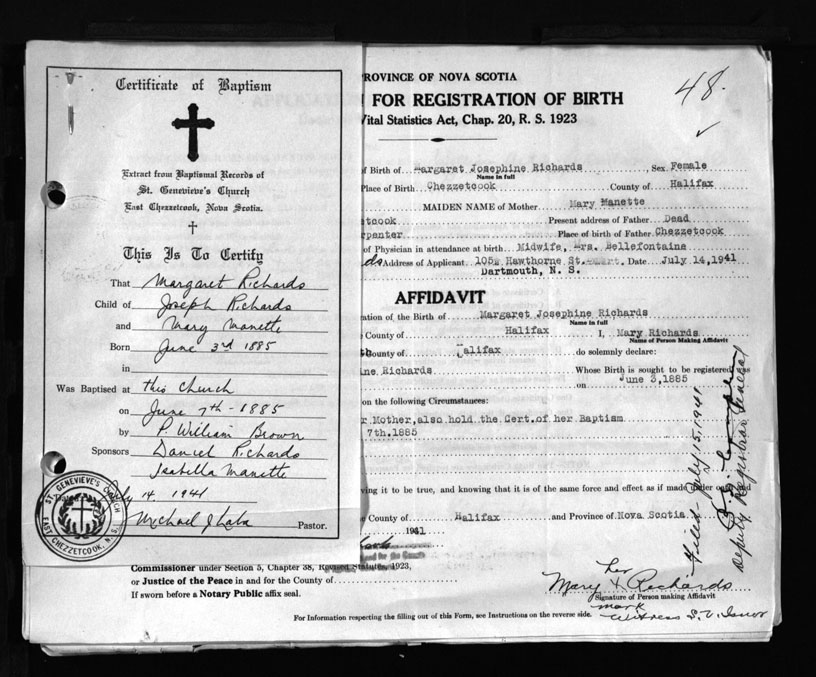 Certificate of Baptism
Extract from Baptismal Records of
St. Genevieve's Church
East Chezzetcook, Nova Scotia.
This Is To Certify
That Margaret Richards
Child of Joseph Richards
and Mary Manette
Born June 3rd 1885
in
Was Baptised at this Church
on June 7th - 1885
by P. William Brown
Sponsors Daniel Richards
Isabella Manette
July 14. 1941
Michael Pastor.
ST. GENEVIEVE'S CHURCH
EAST CHEZZETCOOK, N.S.
ROVINCE OF NOVA SCOTIA
48.
FOR REGISTRATION OF BIRTH
Vital Statistics Act, Chap. 20, R. S. 1923
of Birth of Margaret Josephine Richards Sex Female
Name in full
Place of Birth Chezzetcook County of Halifax
MAIDEN NAME of Mother Mary Manette
etcook Present address of Father Dead
rpenter Place of birth of Father Chezzetcook
of Physician in attendance at birth Midwife, Mrs. Bellefontaine
ds Address of Applicant 105 Hawthorne St. Date July 14, 1941
Dartmouth, N. S.
AFFIDAVIT
ation of the Birth of Margaret Josephine Richards
Name in full
County of Halifax I, Mary Richards
Name of Person Making Affidavit
County of Halifax do solemnly declare:
ine Richards Whose Birth is sought to be registered was
on June 3, 1885
on the following Circumstances:
r Mother, also hold the Cert. of her Baptism
7th. 1885
ving it to be true, and knowing that it is of the same force and effect as if made under oath and
County of Halifax and Province of Nova Scotia
1941
Commissioner under Section 5, Chapter 38, Revised Statutes, 1923,
or Justice of the Peace in and for the County of
If sworn before a Notary Public affix seal.
her
Mary X Richards
Signature of Person making Affidavit
mark
Witness S. V.
For Information respecting the filling out of this Form, see Instructions on the reverse side.
Filed July 15, 1941
Deputy Registrar General